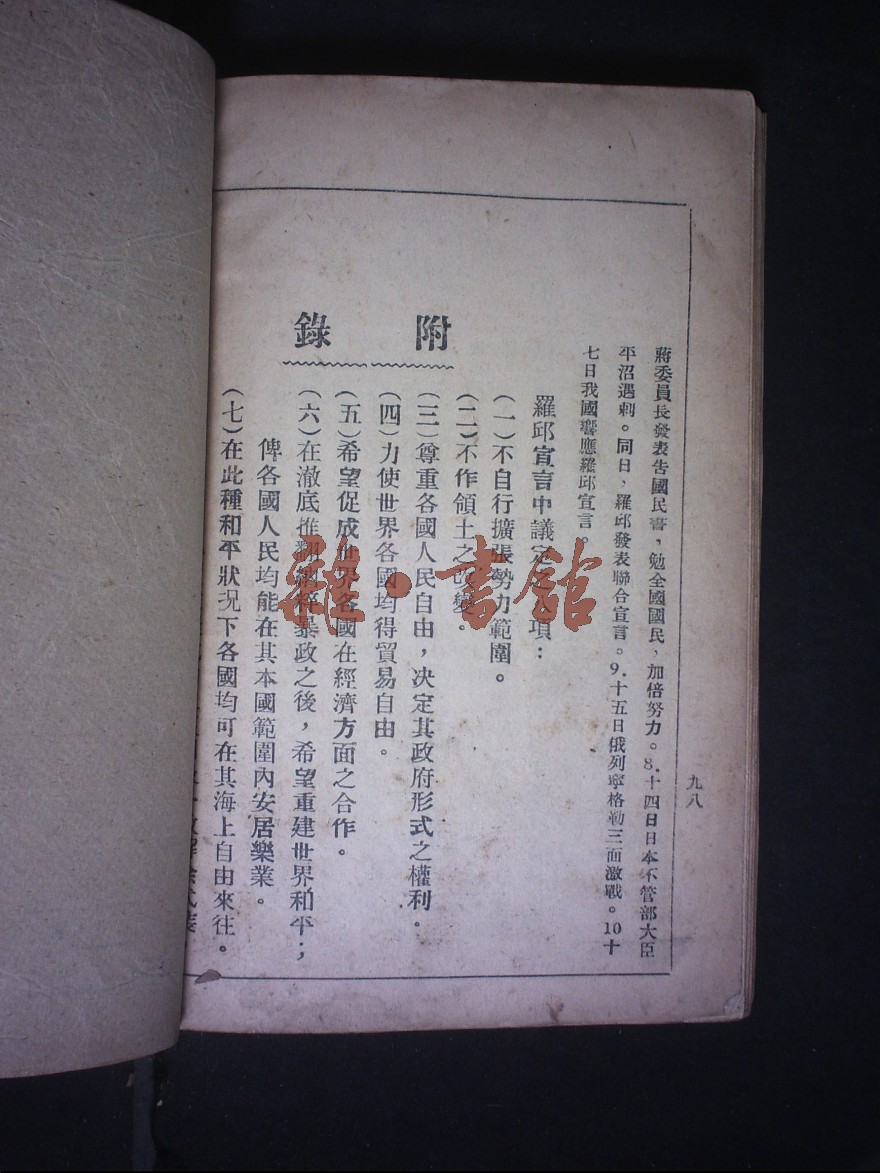 九八
蔣委員長發表告國民書，勉全國國民，加倍努力。8.十四日日本不管部大臣
平沼遇刺。同日，羅邱發表聯合宣言。9.十五日俄列寧格勒三面激戰。10十
七日我國響應羅邱宣言。
附錄
羅邱宣言中議定之 項：
（一）不自行擴張勢力範圍。
（二）不作領土之改變。
（三）尊重各國人民自由，決定其政府形式之權利。
（四）力使世界各國均得貿易自由。
（五）希望促成世界各國在經濟方面之合作。
（六）在澈底推翻納粹暴政之後，希望重建世界和平；
俾各國人民均能在其本國範圍內安居樂業。
（七）在此種和平狀況下各國均可在其海上自由來往。
雜·書館